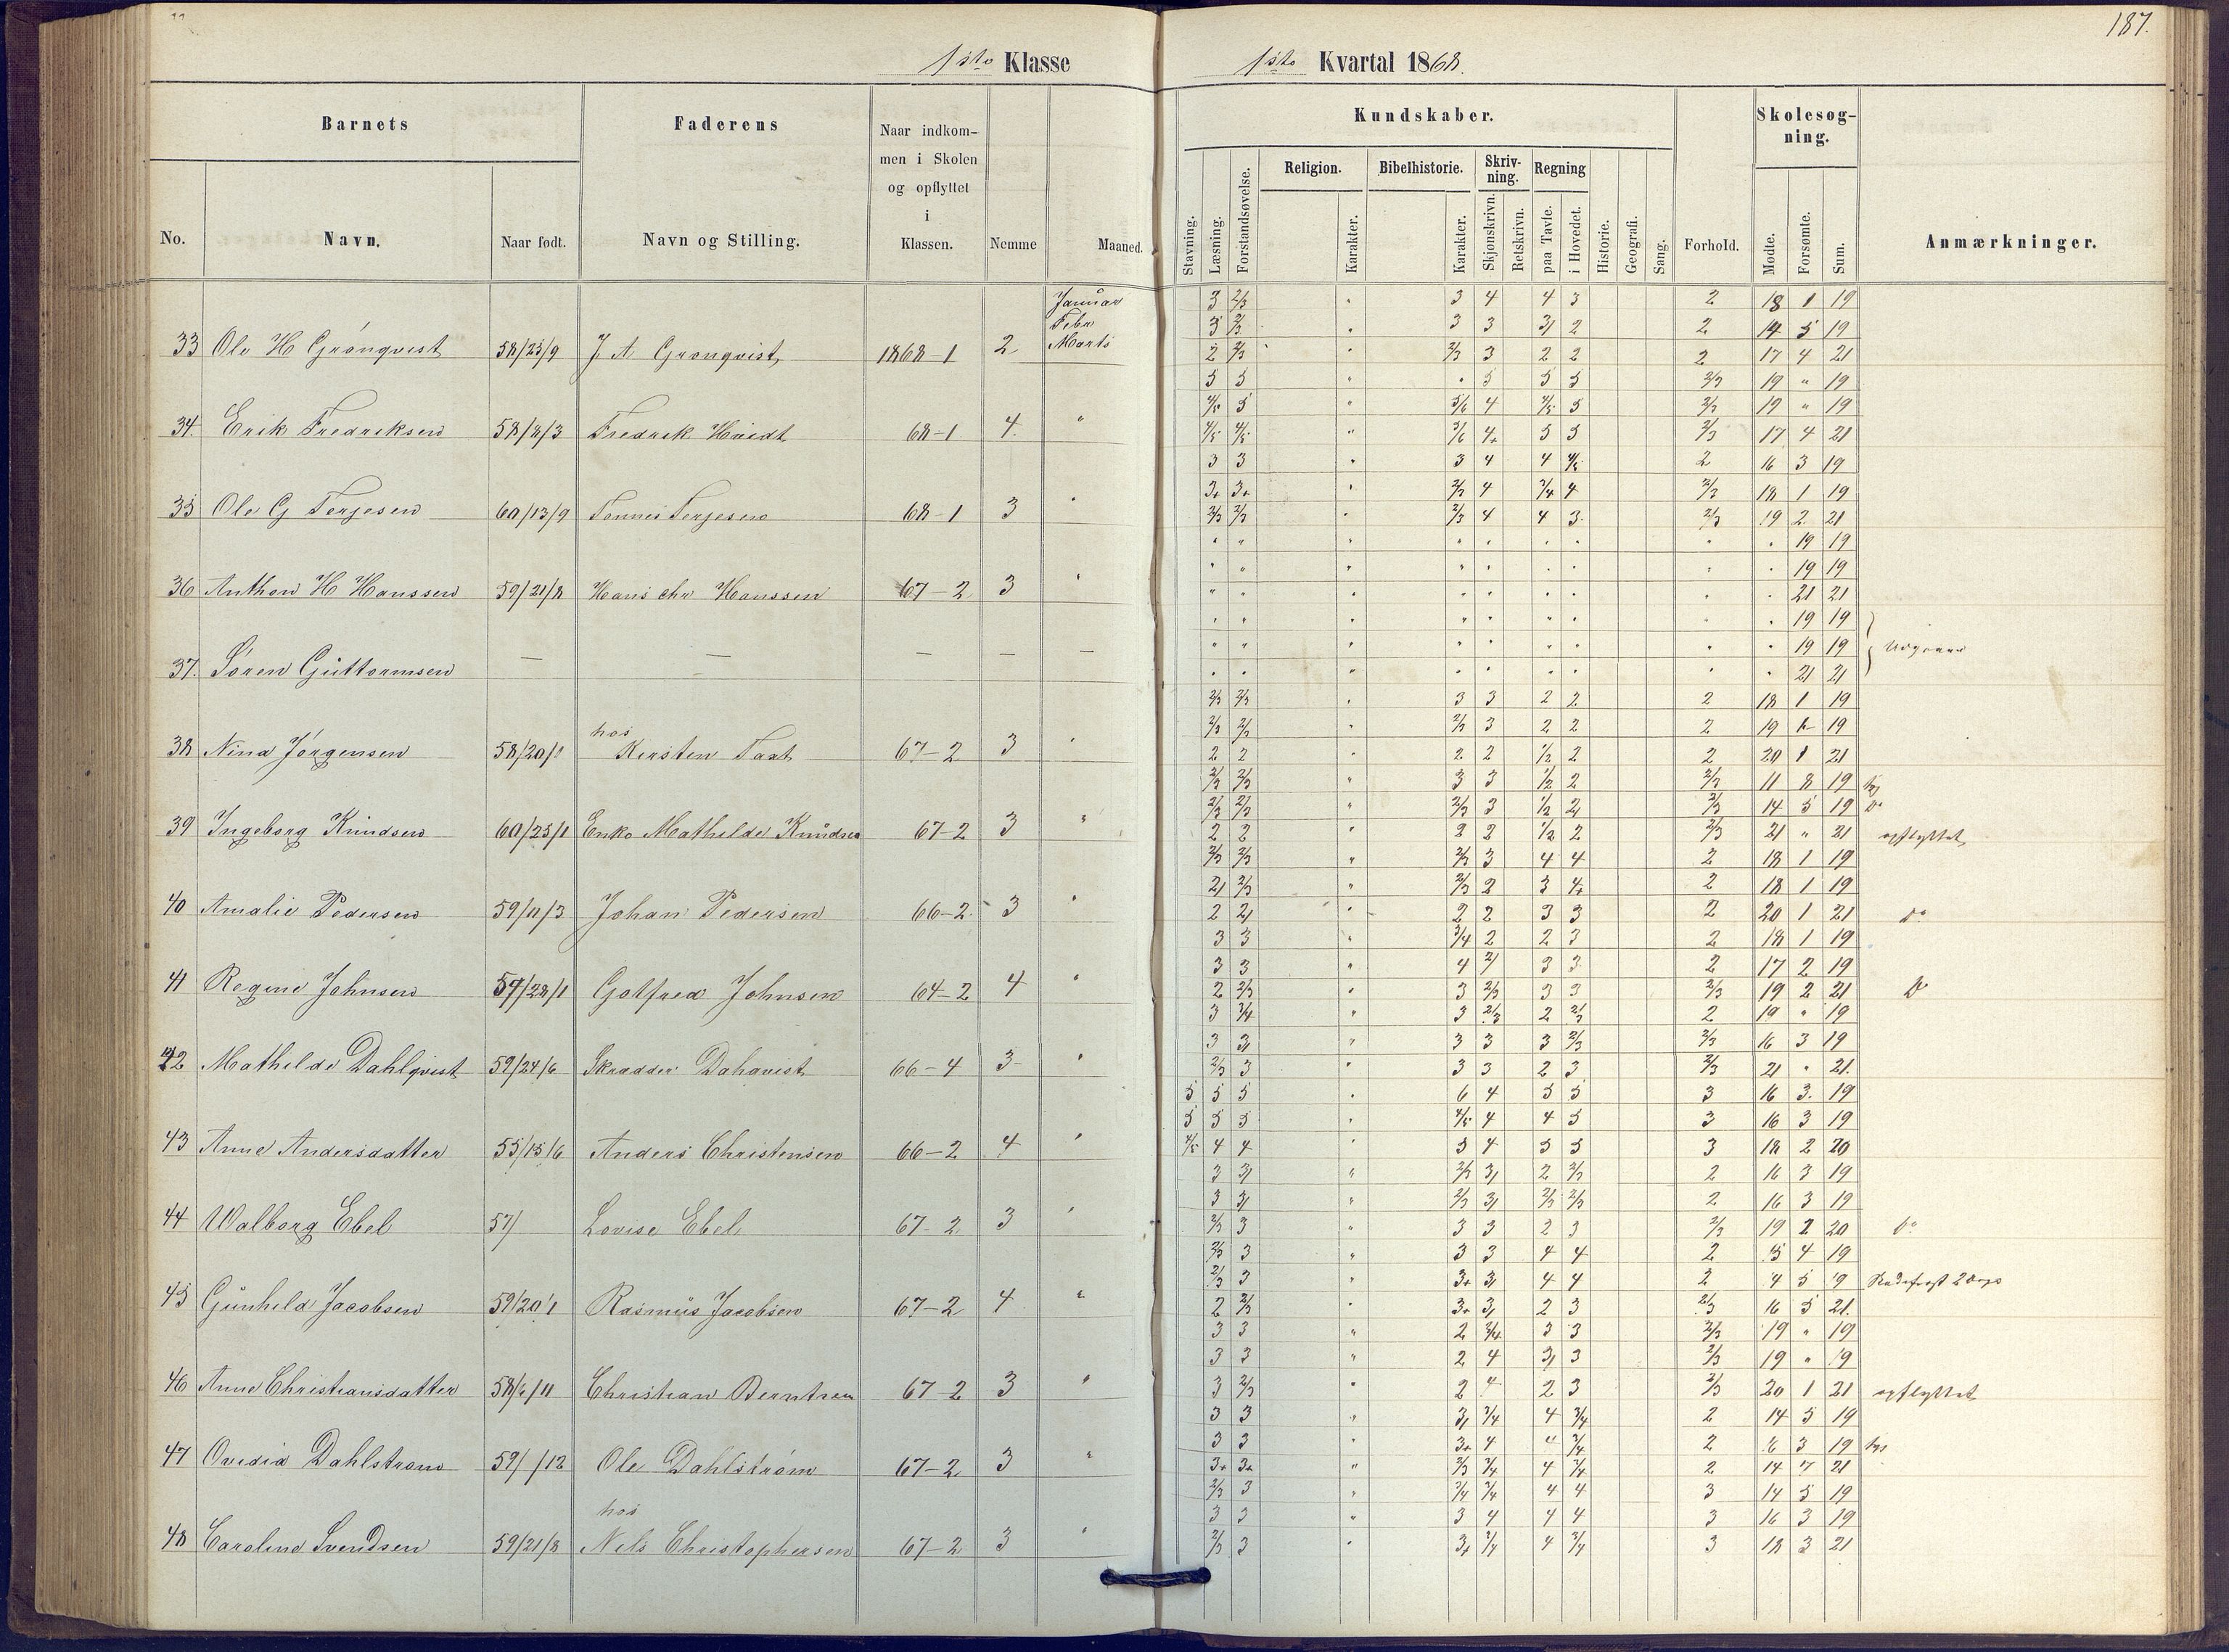 187.
1ste Klasse
1ste Kvartal 1868.
Barnets
Faderens
Naar indkom-
men i Skolen
og opflyttet
i
Klassen.
Nemme
Maaned.
No.
Navn.
Naar født.
Navn og Stilling.
Kundskaber.
Stavning.
Læsning.
Forstandsøvelse.
Religion.
Karakter.
Bibelhistorie.
Karakter.
Skriv-
ning.
Skjønskrivn.
Retskrivn.
Regning
paa Tavle.
i Hovedet.
Historie.
Geografi.
Sang.
Forhold.
Skolesøg-
ning.
Mødte.
Forsømte.
Sum.
Anmærkninger.
Januar
Febr
Marts
33 Ole H Grønqvist 58/25/9 J. A. Grønqvist 1868-1 2
3 2/3 " 3 4 4 3 2 18 1 19
3 2/3 " 3 3 3/ 2 2 14 5 19
2 2/3 " 2/3 3 2 2 2 17 4 21
34. Erik Fredriksen 58/8/3 Fredrik Hvidt 68-1 4. "
5 5 " " 5 5 5 2/3 19 " 19
4/5 5 " 5/6 4 4/5 5 2/3 19 " 19
4/5 4/5 " 5/6 4+ 5 5 2/3 17 4 21
35 Ole G Terjesen 60/13/9 Tønnes Terjesen 68-1 3 "
3 3 " 3 4 4 4/5 2 16 3 19
3+ 3+ " 2/3 4 3/4 4 2/3 18 1 19
2/3 2/3 " 2/3 4 4 3 2/3 19 2 21
36 Anthon H Hanssen 59/21/8 Hans Chr Hanssen 67-2 3 "
" " " " " " " " " 19 19
" " " " " " " " " 19 19
" " " " " " " " " 21 21
37. Søren Guttormsen — — — — —
" " " " " " " " " 19 19
" " " " " " " " " 19 19
" " " " " " " " " 21 21
38 Nina Jørgensen 58/20/1 hos Kirsten Taat 67-2 3 "
2/3 2/3 " 3 3 2 2 2 18 1 19
2/3 2/3 " 2/3 3 2 2 2 19 " 19
2 2 " 2 2 1/2 2 2 20 1 21
39 Ingeborg Knudsen 60/25/1 Enke Mathilde Knudsen 67-2 3 "
2/3 2/3 " 3 3 1/2 2 2/3 11 8 19 syg
2/3 2/3 " 2/3 3 1/2 2/ 2/3 14 5 19 Do
2 2 " 2 2 1/2 2 2/3 21 " 21 opflyttet
40 Amalie Pedersen 59/11/3 Johan Pedersen 66-2 3 "
2/3 2/3 " 2/3 3 4 4 2 18 1 19
2/ 2/3 " 2/3 2 3 4+ 2 18 1 19
2 2/ " 2 2 3 3 2 20 1 21 Do
41 Regine Johnsen 57/28/1 Gotfred Johnsen 64-2 4 "
3 3 " 3/4 2 2 3 2 18 1 19
3 3 " 4 2/ 3 3 2 17 2 19
2 2/3 " 3 2/3 3 3 2/3 19 2 21 Do
42 Mathilde Dahlqvist 59/24/6 Skrædder Dahqvist 66-4 3 "
3 3/4 " 3 2/3 2 2/3 2 19 " 19
3 3/ " 3 3 3 2/3 2/3 16 3 19
2/3 3 " 3 3 2 3 2/3 21 " 21.
43 Anne Andersdatter 55/15/6 Anders Christensen 66-2 4 "
5 5 5 " 6 4 5 5 3 16 3. 19
5 5 5 " 4/5 4 4 5 3 16 3 19
4/5 4 4 " 5 4 5 5 3 18 2 20
44 Walborg Ebel 57/ Lovise Ebel 67-2 3 "
3 3/ " 2/3 3/ 2 2/3 2 16 3 19
3 3/ " 2/3 3/ 2/3 2/3 2 16 3 19
2/3 3 " 3 3 2 3 2/3 19 1 20 Do
45 Gunhild Jacobsen 59/20/1 Rasmus Jacobsen 67-2 4 "
2/3 3 " 3 3 4 4 2 15 4 19
2/3 3 " 3+ 3/ 4 4 2 14 5 19
2 2/3 " 3+ 3/ 2 3 2/3 16 5 21.
46 Anne Christiansdatter 58/6/11 Christian Berntsen 67-2 3 "
3 3 " 2 3/4 3 3 2/3 19 " 19
3 3 " 2 4 3/ 3 2/3 19 " 19
3 2/3 " 2 4 2 3 2/3 20 1 21 opflyttet
47 Ovidia Dahlstrøm 59/ /12 Ole Dahlstrøm 67-2 3 "
3 3 " 3/ 3/4 4 3/4 2 14 5 19
3 3 " 3+ 4 4 3/4 2 16 3 19 syg
3+ 3+ " 2/3 3/4 4 3/4 2 14 7 21
48 Caroline Svendsen 59/21/8 hos Nils Christophersen 67-2 3 "
2/3 3 " 3/4 3/4 4 4 3 14 5 19
3 3 " 3 4 4 4 3 16 3 19
2/3 3 " 3+ 3/4 4 3/4 3 18 3 21